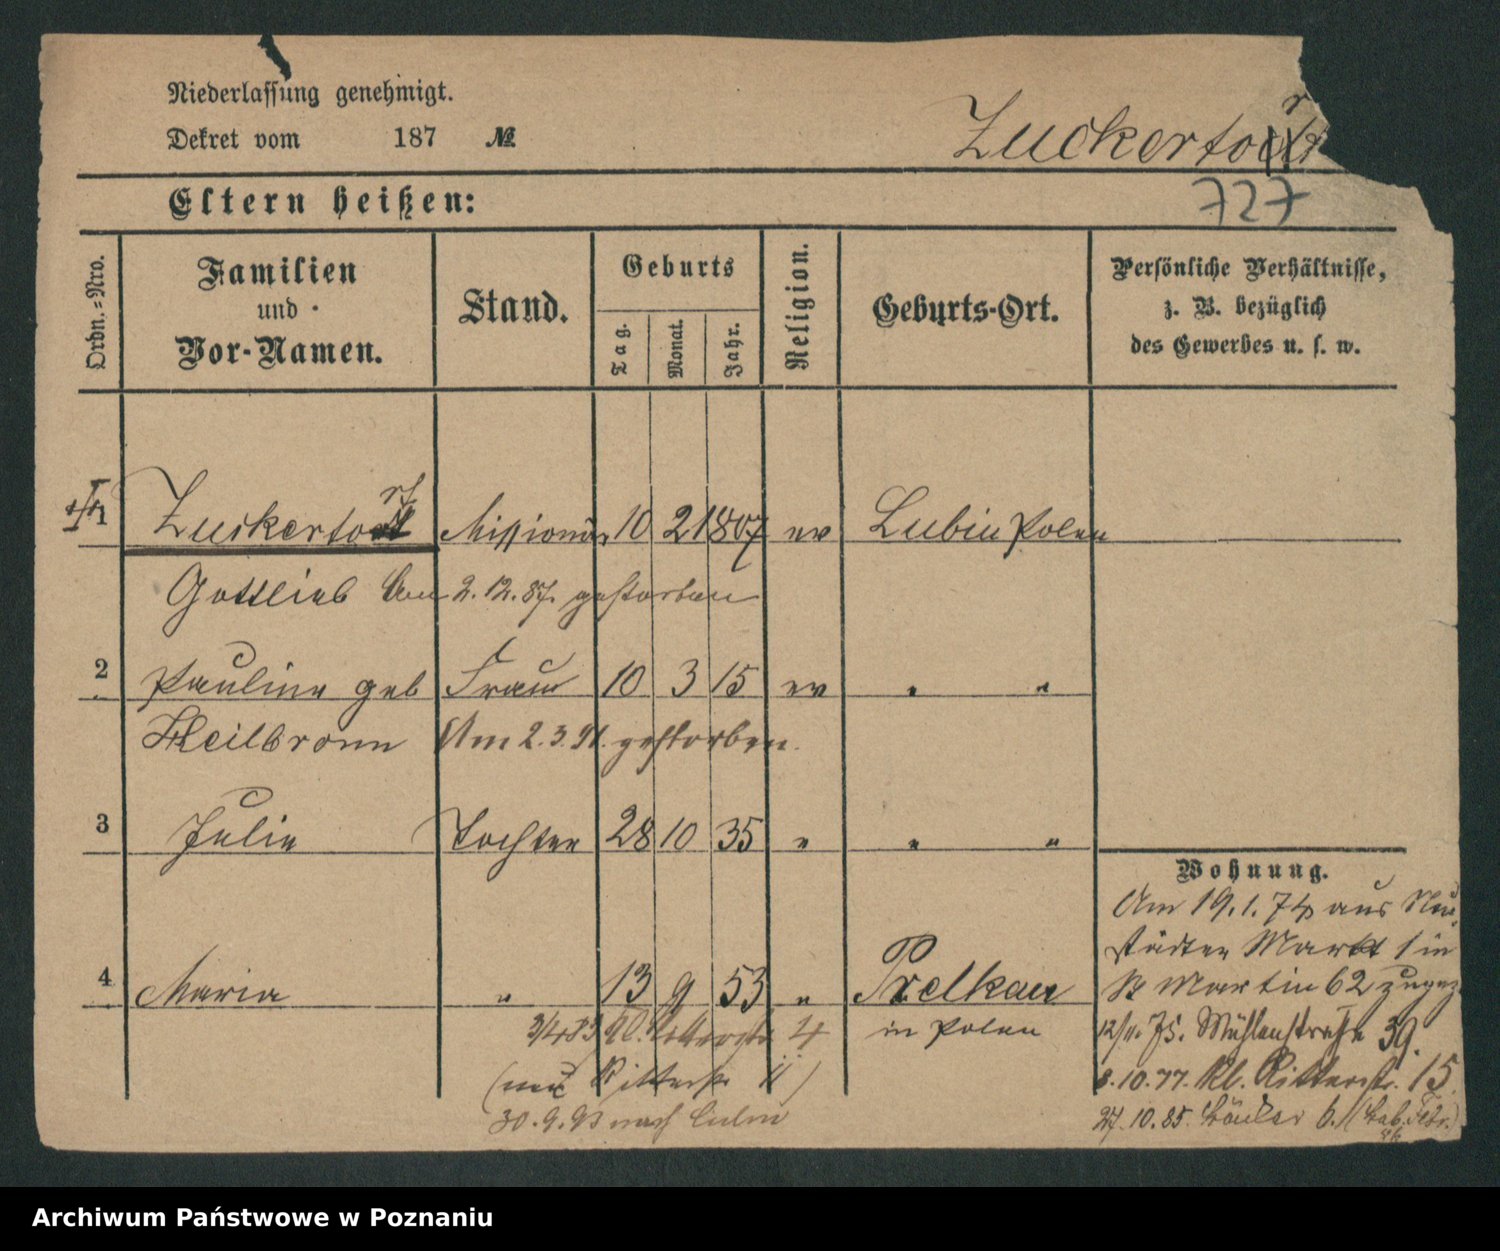 Niederlassung genehmigt.
Dekret vom 187 №
Zuckertort
727
Eltern heißen:
Ordn.-Nro.
Familien und Vor-Namen.
Stand.
Geburts
Tag.
Monat.
Jahr.
Religion.
Geburts-Ort.
Persönliche Verhältnisse, z. B. bezüglich des Gewerbes u. s. w.
1 Zuckertort Missionär 10 2 1807 ev Lubin Polen
Gottlieb Am 2.12.87. gestorben
2 Pauline geb Frau 10 3 15 ev " "
Heilbronn Am 2.3.91. gestorben.
3 Julie Tochter 28 10 35 " " "
Wohnung.
Am 19.1.74 aus Neu-
städter Markt 1 in
St Martin 62 zugez.
4 Maria " 13 9 53 " Prelkau
in Polen
3/4 83 4
12/11. 75. Mühlenstraße 39.
8.10.77. Kl. Ritterstr. 15
(nur Ritterstr 11)
30.9.93 nach Culm
27.10.85. Bäcker 6.
Archiwum Państwowe w Poznaniu